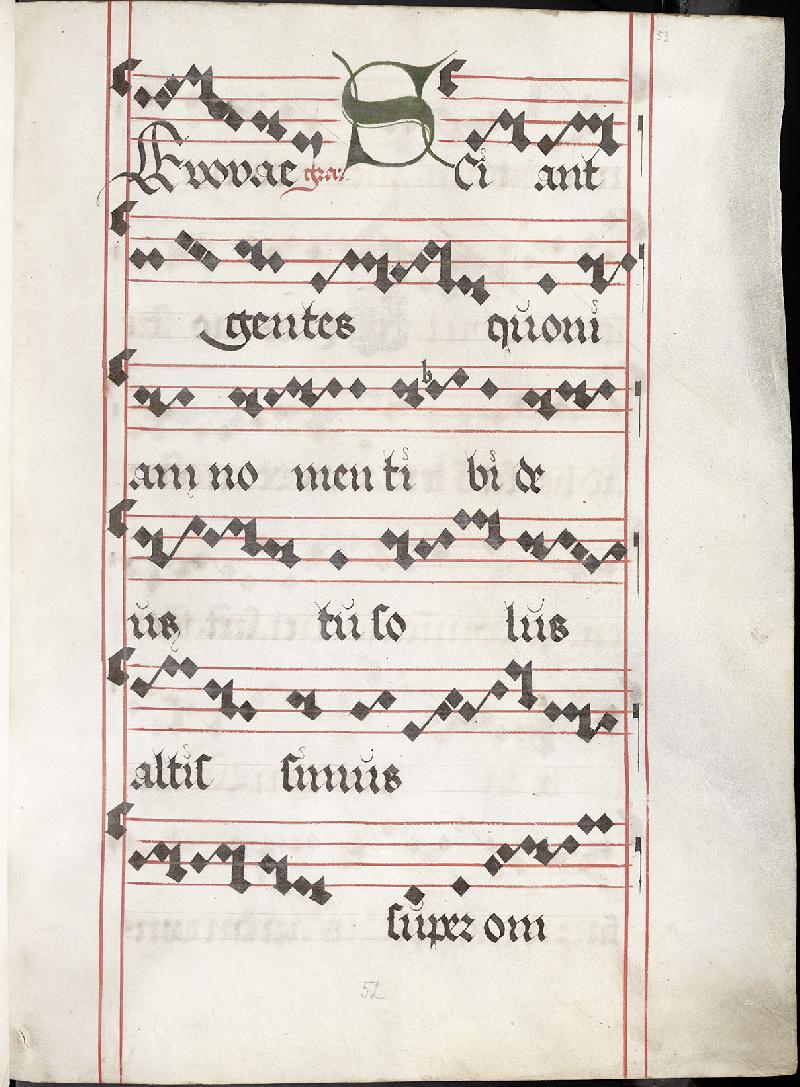 53
Evovae gra: SCi ant
gentes quoni
am no men ti bi de
us tu so lus
altis simus
super om
52